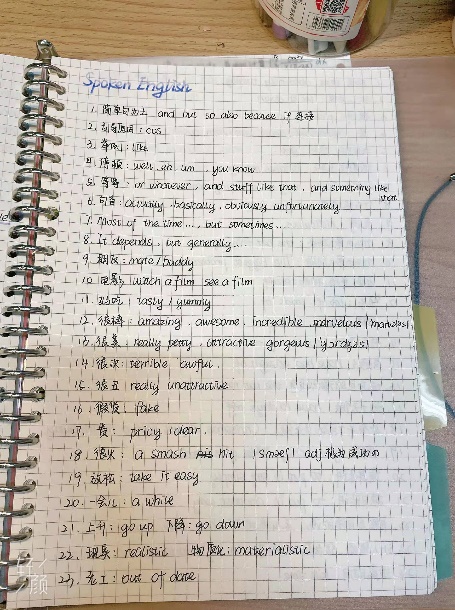 Spoken English
1. 简单句加上 and but so also because if 连接
2. 引导原因: cus
3. 举例: like
4. 停顿: well, eh um , you know
5. 等等: or whatever, and stuff like that , and something like that
6. 句首: actually basically, obviously unfortunately
7. Most of the time..., but sometimes...
8. It depends, but generally...
9. 朋友: mate / buddy
10. 电影: watch a film see a film
11. 好吃: tasty / yummy
12. 很棒: amazing, awesome, incredible, marvelous /'marvələs/
13. 很美: really pretty, attractive gorgeous
14. 很次: terrible awful.
15. 很丑 really unattractive
16. 假发: fake
17. 贵: pricy / dear
18. 很火: a smash hit adj
19. 放松: take it easy
20. 一会儿: a while
21. 上升: go up 下降: go down
22. 现实: realistic 物质化: materialistic
23. : out of date